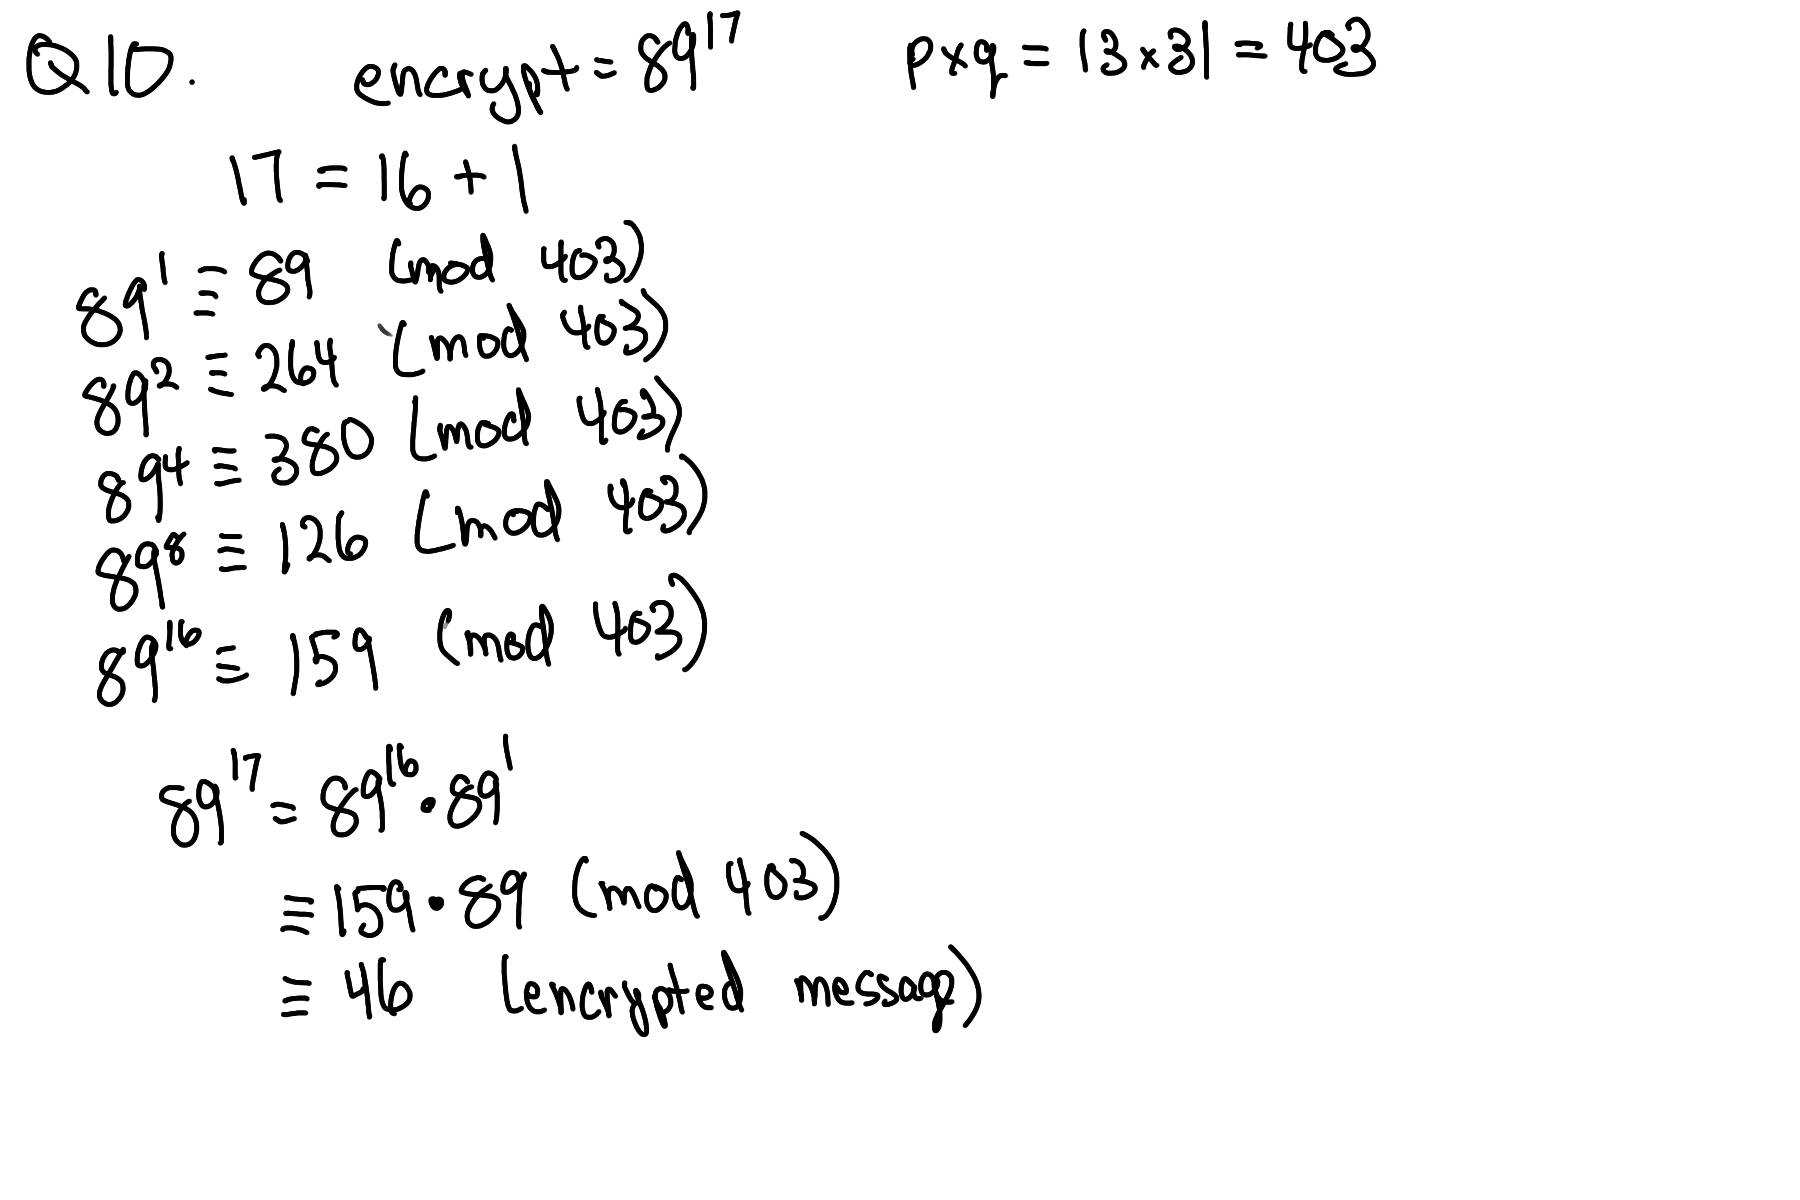 Q10. encrypt = 89¹⁷ p×q = 13×31 = 403
17 = 16 + 1
89¹ ≡ 89 (mod 403)
89² ≡ 264 (mod 403)
89⁴ ≡ 380 (mod 403)
89⁸ ≡ 126 (mod 403)
89¹⁶ ≡ 159 (mod 403)
89¹⁷ = 89¹⁶ • 89¹
≡ 159 • 89 (mod 403)
≡ 46 (encrypted message)